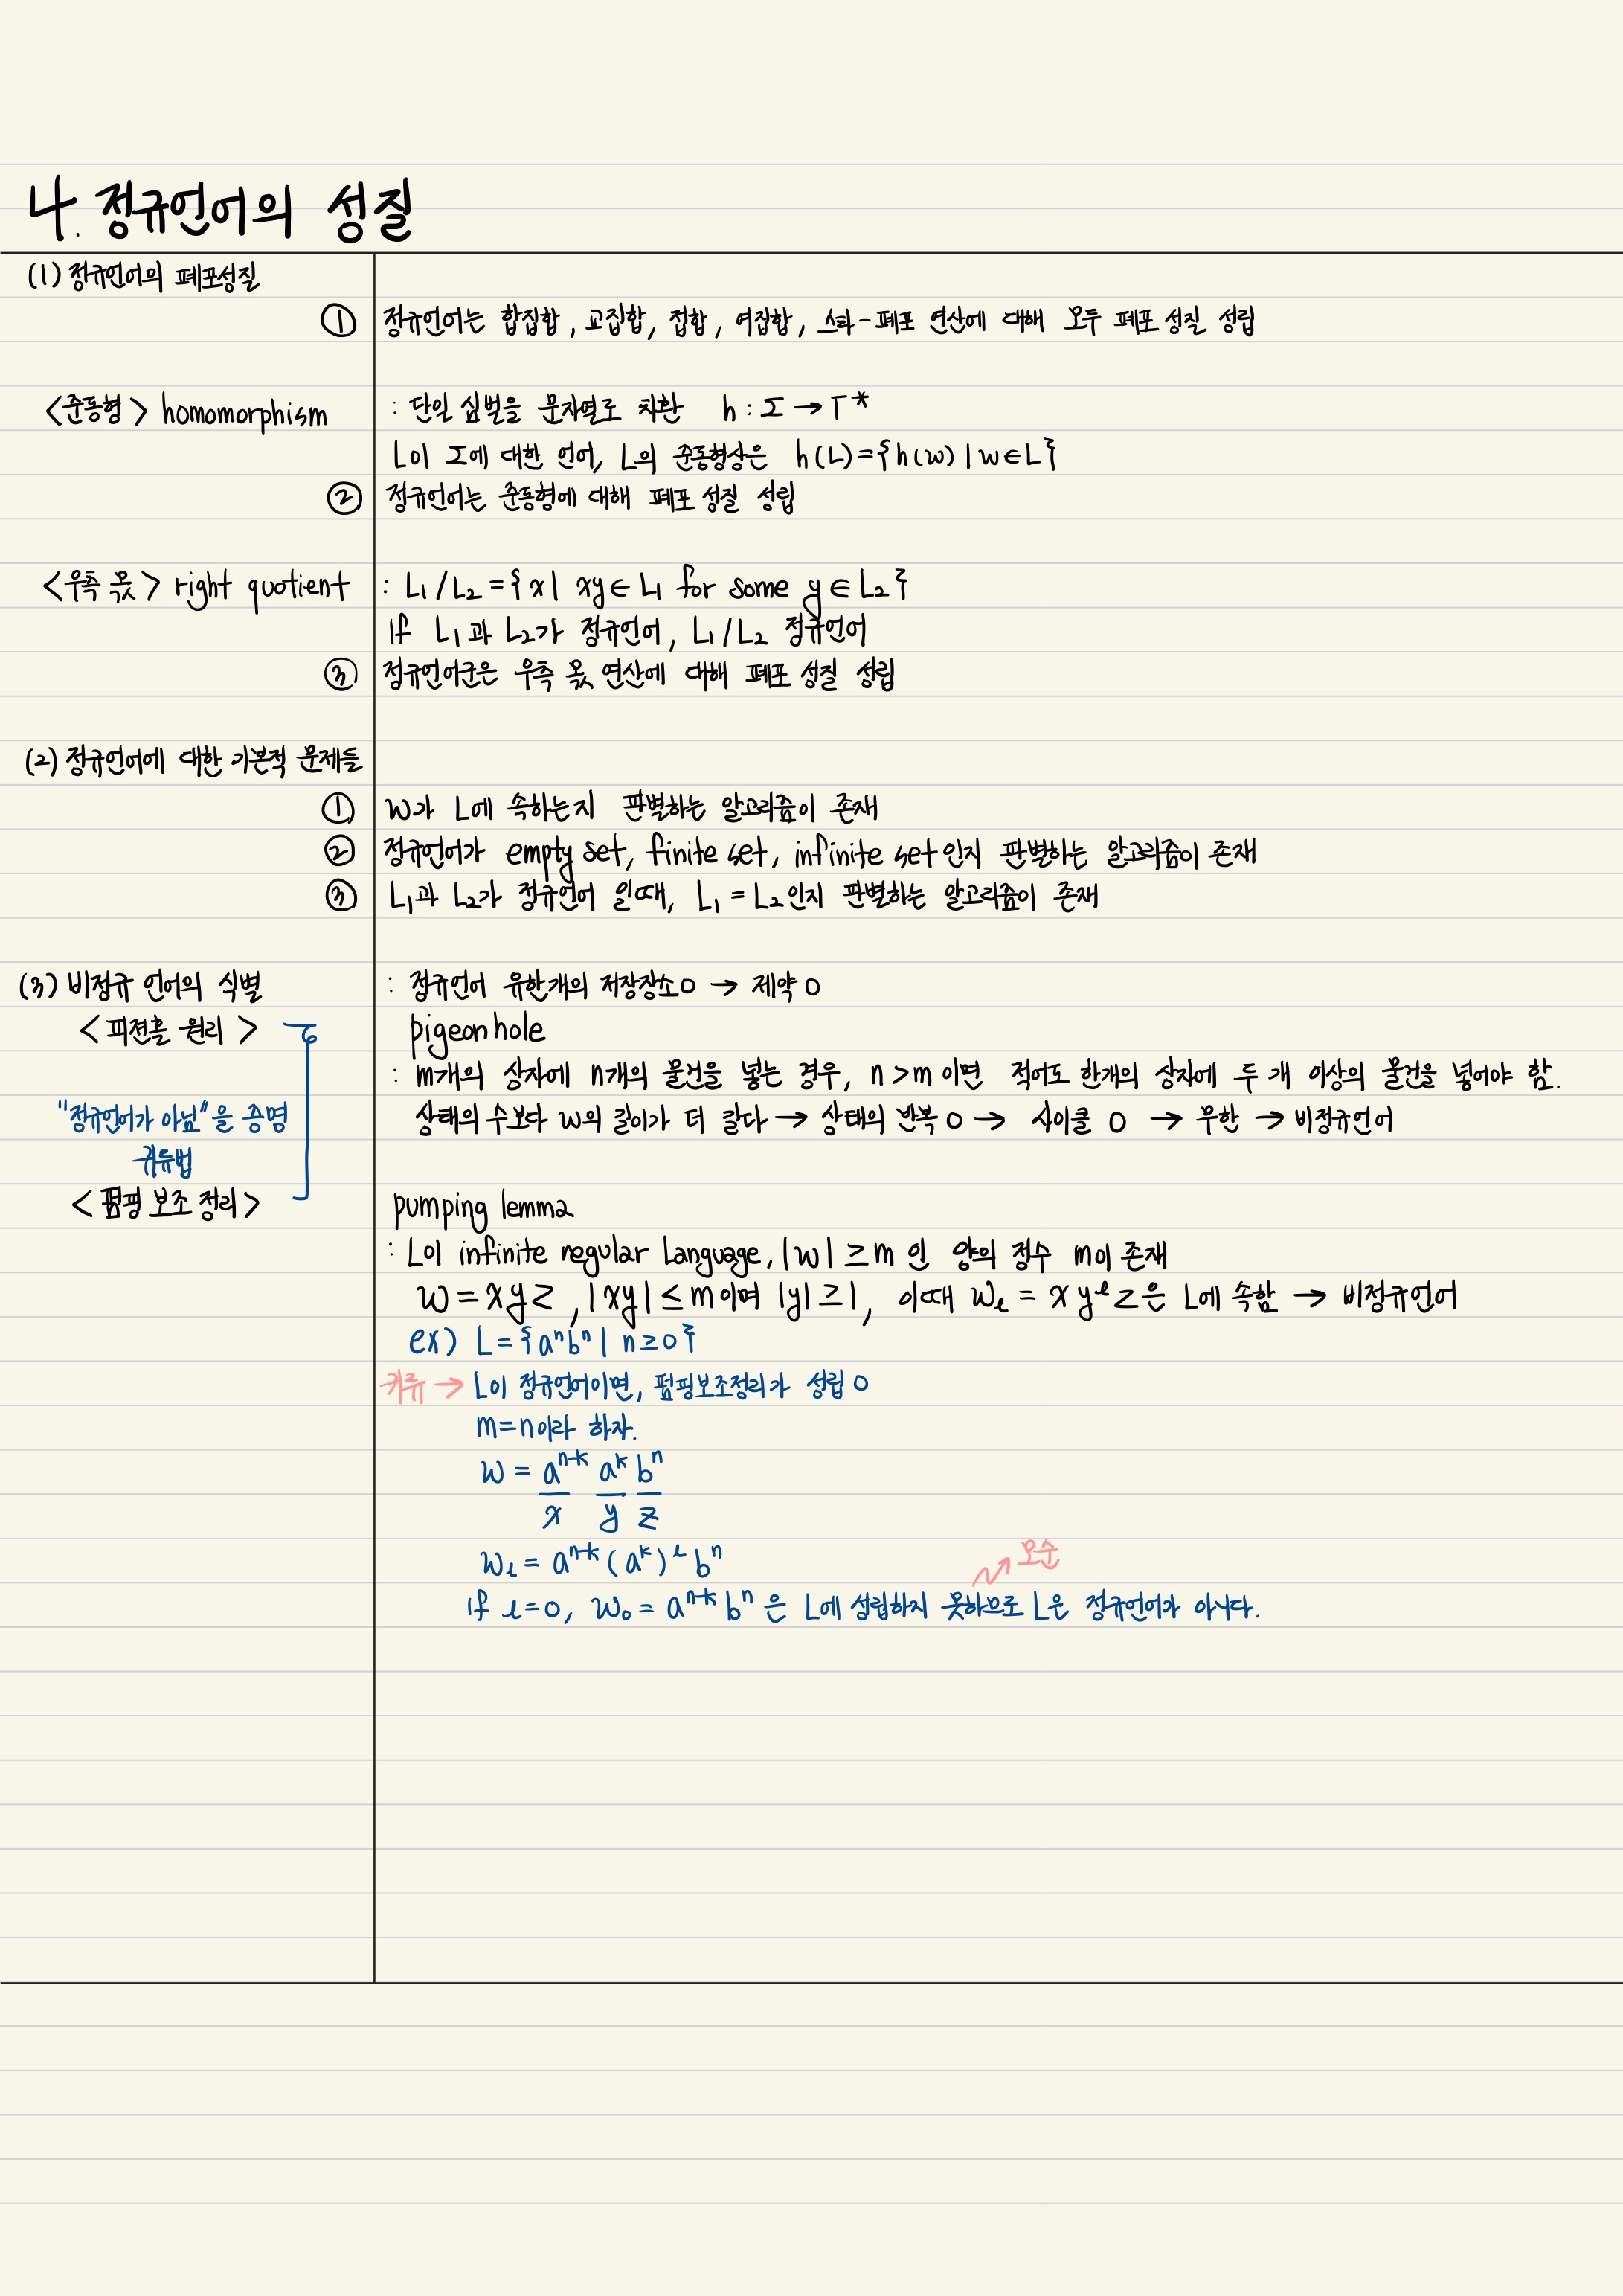 4. 정규언어의 성질
(1) 정규언어의 폐포성질
① 정규언어는 합집합, 교집합, 접합, 여집합, 스타-폐포 연산에 대해 모두 폐포 성질 성립
<준동형> homomorphism : 단일 심벌을 문자열로 치환 h : Σ → Γ*
L이 Σ에 대한 언어, L의 준동형상은 h(L)={h(w) | w∈L}
② 정규언어는 준동형에 대해 폐포 성질 성립
<우측 몫> right quotient : L₁/L₂ = {x | xy ∈ L₁ for some y ∈ L₂}
If L₁과 L₂가 정규언어, L₁/L₂ 정규언어
③ 정규언어군은 우측 몫 연산에 대해 폐포 성질 성립
(2) 정규언어에 대한 기본적 문제들
① w가 L에 속하는지 판별하는 알고리즘이 존재
② 정규언어가 empty set, finite set, infinite set인지 판별하는 알고리즘이 존재
③ L₁과 L₂가 정규언어 일때, L₁ = L₂인지 판별하는 알고리즘이 존재
(3) 비정규 언어의 식별 : 정규언어 유한개의 저장장소O → 제약O
<피전홀 원리> pigeonhole
: m개의 상자에 n개의 물건을 넣는 경우, n>m이면 적어도 한개의 상자에 두 개 이상의 물건을 넣어야 함.
"정규언어가 아님"을 증명 상태의 수보다 w의 길이가 더 길다 → 상태의 반복 O → 사이클 O → 무한 → 비정규언어
귀류법
<펌핑 보조 정리> pumping lemma
: L이 infinite regular Language, |w| ≥ m 인 양의 정수 m이 존재
w = xyz, |xy| ≤ m이며 |y| ≥ 1, 이때 wᵢ = xyⁱz은 L에 속함 → 비정규언어
ex) L = {aⁿbⁿ | n≥0}
귀류 → L이 정규언어이면, 펌핑보조정리가 성립 O
m=n이라 하자.
w = aⁿ⁻ᵏ aᵏ bⁿ
x y z
wᵢ = aⁿ⁻ᵏ (aᵏ)ⁱ bⁿ
모순
if i=0, w₀ = aⁿ⁻ᵏ bⁿ 은 L에 성립하지 못하므로 L은 정규언어가 아니다.